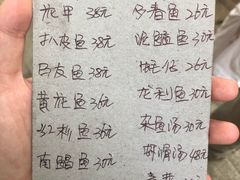 花甲 38元 多春鱼 26元
扒皮鱼 38元 泥鯭鱼 30元
马友鱼 38元 26元
黄花鱼 36元 龙利鱼 30元
红杉鱼 36元 杂鱼汤 30元
南鲳鱼 30元 虾滑汤 48元